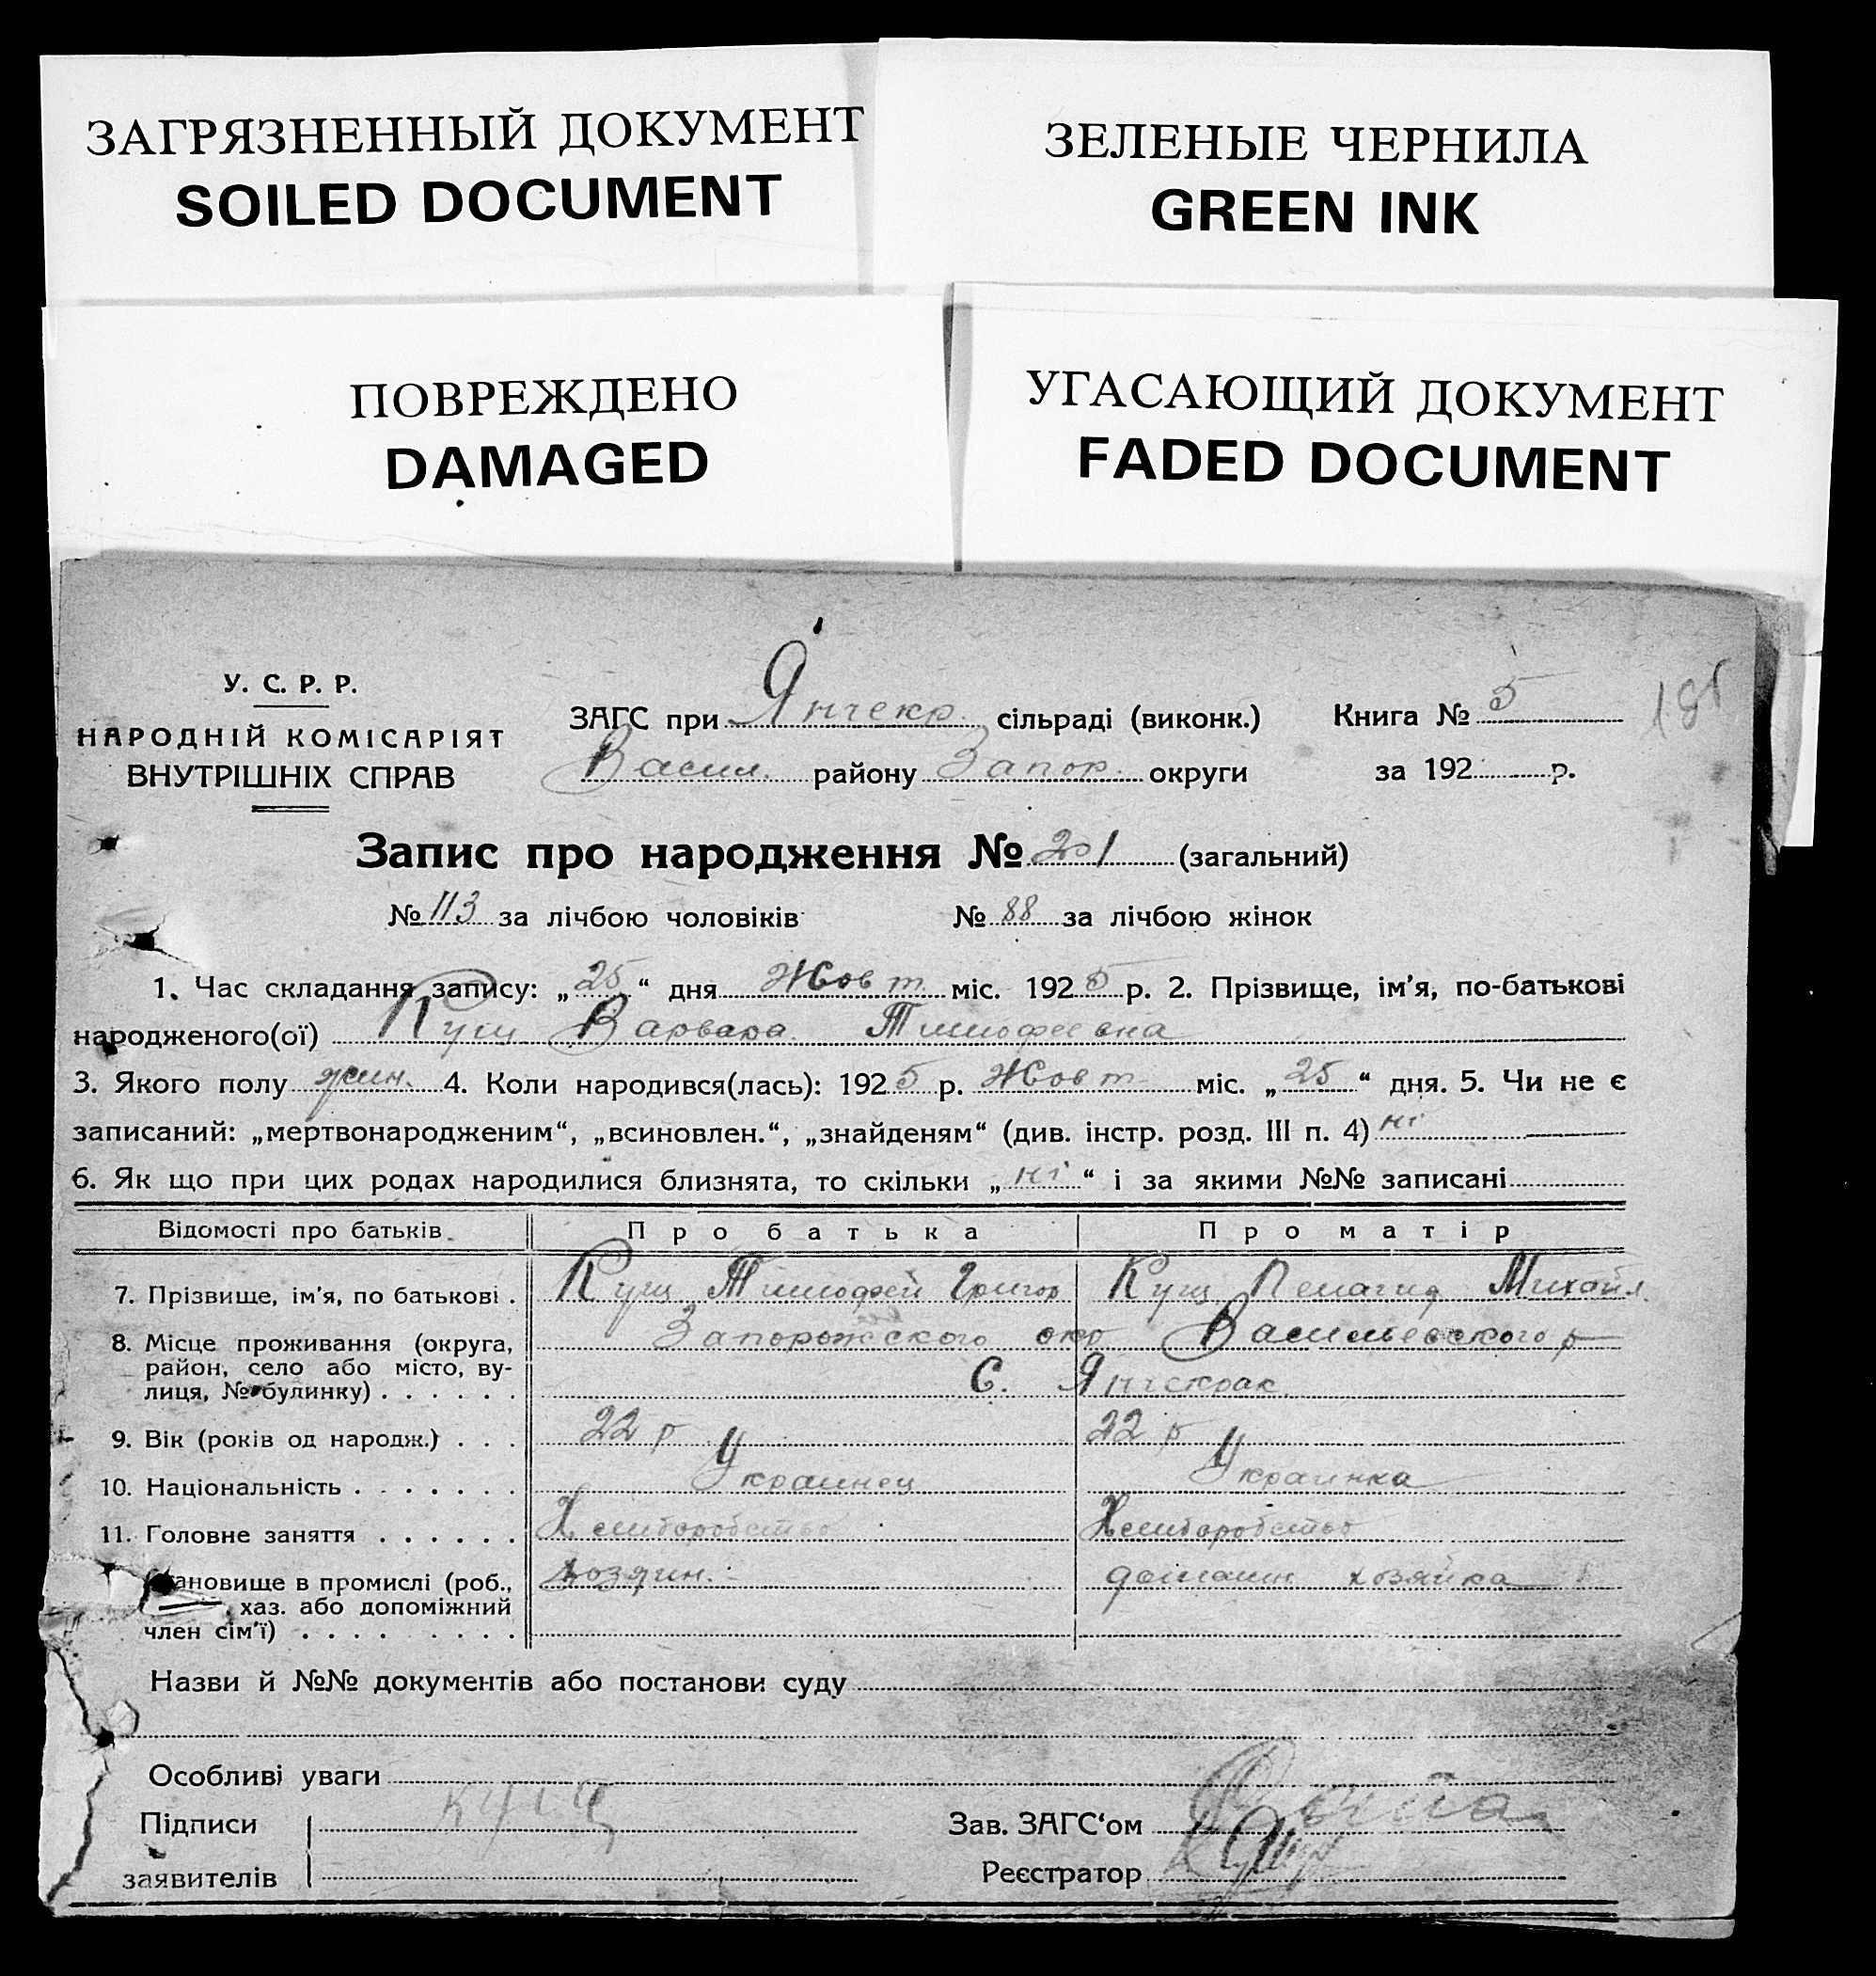 ЗАГРЯЗНЕННЫЙ ДОКУМЕНТ
SOILED DOCUMENT
ЗЕЛЕНЫЕ ЧЕРНИЛА
GREEN INK
ПОВРЕЖДЕНО
DAMAGED
УГАСАЮЩИЙ ДОКУМЕНТ
FADED DOCUMENT
У. С. Р. Р.
НАРОДНІЙ КОМІСАРІЯТ
ВНУТРІШНІХ СПРАВ
ЗАГС при Янчекр. сільраді (виконк.)
Васил. району Запор. округи
Книга № 5
за 192 р.
Запис про народження № 201 (загальний)
№ 113 за лічбою чоловіків № 88 за лічбою жінок
1. Час складання запису: „25“ дня Жовт. міс. 1925 р. 2. Прізвище, ім'я, по-батькові
народженого(ої) Кущ Варвара Тимофеевна
3. Якого полу жин. 4. Коли народився(лась): 1925 р. Жовт міс. „25“ дня. 5. Чи не є
записаний: „мертвонародженим“, „всиновлен.“, „знайденям“ (див. інстр. розд. III п. 4) ні
6. Як що при цих родах народилися близнята, то скільки „ні“ і за якими №№ записані
Відомості про батьків. Про батька Про матір
7. Прізвище, ім'я, по батькові . Кущ Тимофей Григор Кущ Пелагия Михайл.
8. Місце проживання (округа, Запорожского окр Васильевского р
район, село або місто, ву-
лиця, № будинку) . . . . . . С. Янчекрак
9. Вік (років од народж.) . . . 22 р 22 р
10. Національність . . . . . . . Украинец Украинка
11. Головне заняття . . . . . . Хлиборобство Хлиборобство
ановище в промислі (роб., хозяин. домашн хозяйка
хаз. або допоміжний
член сім'ї) . . . . . . . .
Назви й №№ документів або постанови суду
Особливі уваги
Підписи Кущ Зав. ЗАГС‘ом
заявителів Реєстратор